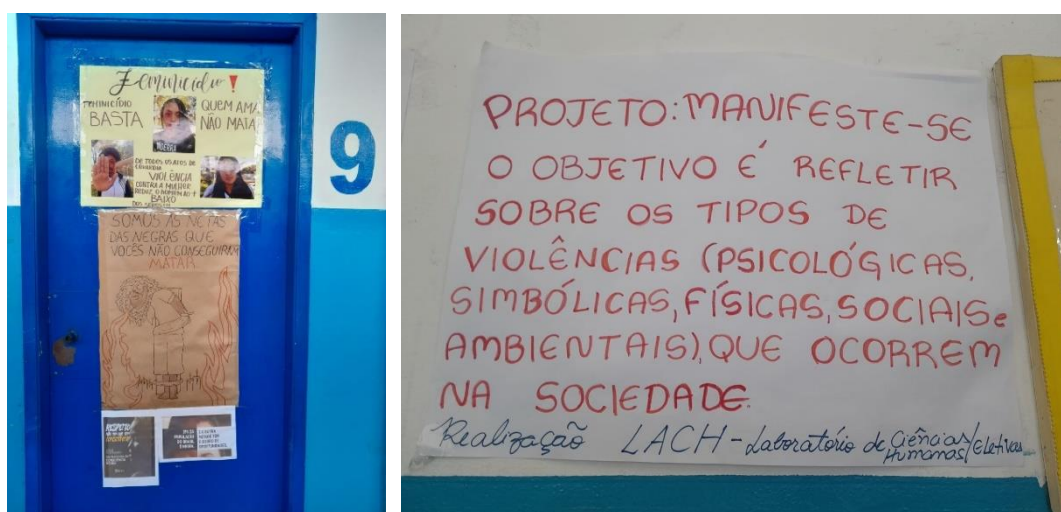 Feminicídio!
FEMINICÍDIO
BASTA
QUEM AMA
NÃO MATA
DE TODOS OS ATOS DE
COVARDIA
VIOLÊNCIA
CONTRA A MULHER
BAIXO
SOMOS AS NETAS
DAS NEGRAS QUE
VOCÊS NÃO CONSEGUIRAM
MATAR
RESPEITO
9
PROJETO: MANIFESTE-SE
O OBJETIVO É REFLETIR
SOBRE OS TIPOS DE
VIOLÊNCIAS (PSICOLÓGICAS,
SIMBÓLICAS, FÍSICAS, SOCIAIS e
AMBIENTAIS), QUE OCORREM
NA SOCIEDADE.
Realização LACH - Laboratório de Ciências Humanas/Eletivas